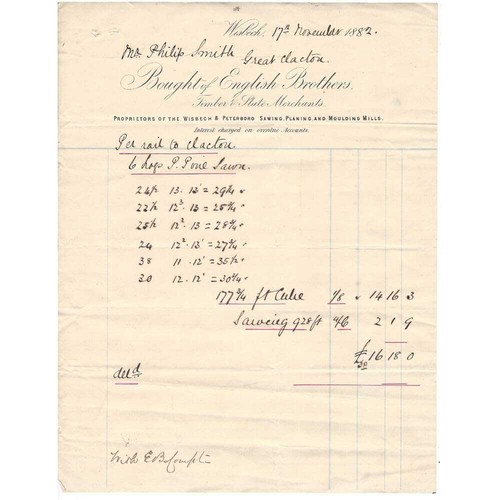 Wisbech, 17th November 1882.
Mr. Philip Smith
Great Clacton.
Bought of English Brothers,
Timber & Slate Merchants.
PROPRIETORS OF THE WISBECH & PETERBORO SAWING, PLANING AND MOULDING MILLS.
Interest charged on overdue Accounts.
Per rail to Clacton
6 logs P. Pine Sawn.
24½ 13 · 13 = 29¾
22½ 12³ · 13 = 25¾
25½ 12² · 13 = 28¾
24 12² · 13 = 27¾
38 11 · 12 = 35½
30 12 · 12 = 30¾
177¾ ft Cube 1/8 14 16 3
Sawing 928 ft 4/6 2 1 9
£16 18 0
deld
With E. B. Compts